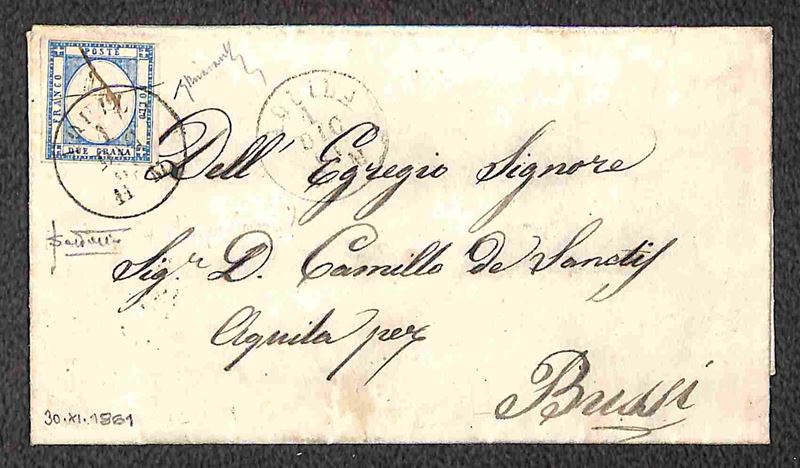 POSTE
FRANCO
BOLLO
DUE GRANA
AQUILA
1
DIC
Dell' Egregio Signore
Sig.r D. Camillo de Sanctis
Aquila per
Bussi
30.XI.1861